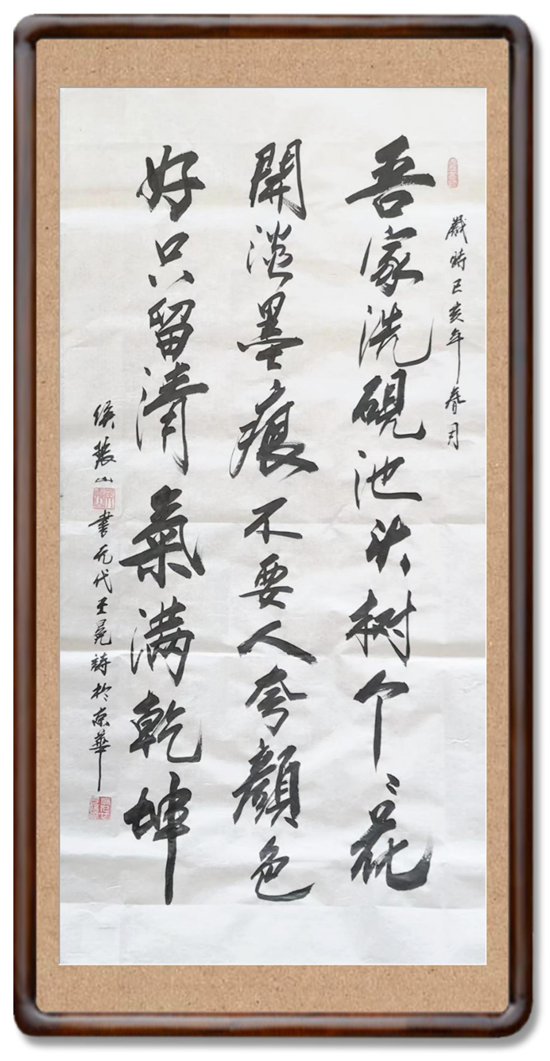 歲時己亥年春月
吾家洗硯池头树个々花
開淡墨痕不要人夸顏色
好只留清氣满乾坤
侯山書元代王冕詩於京華